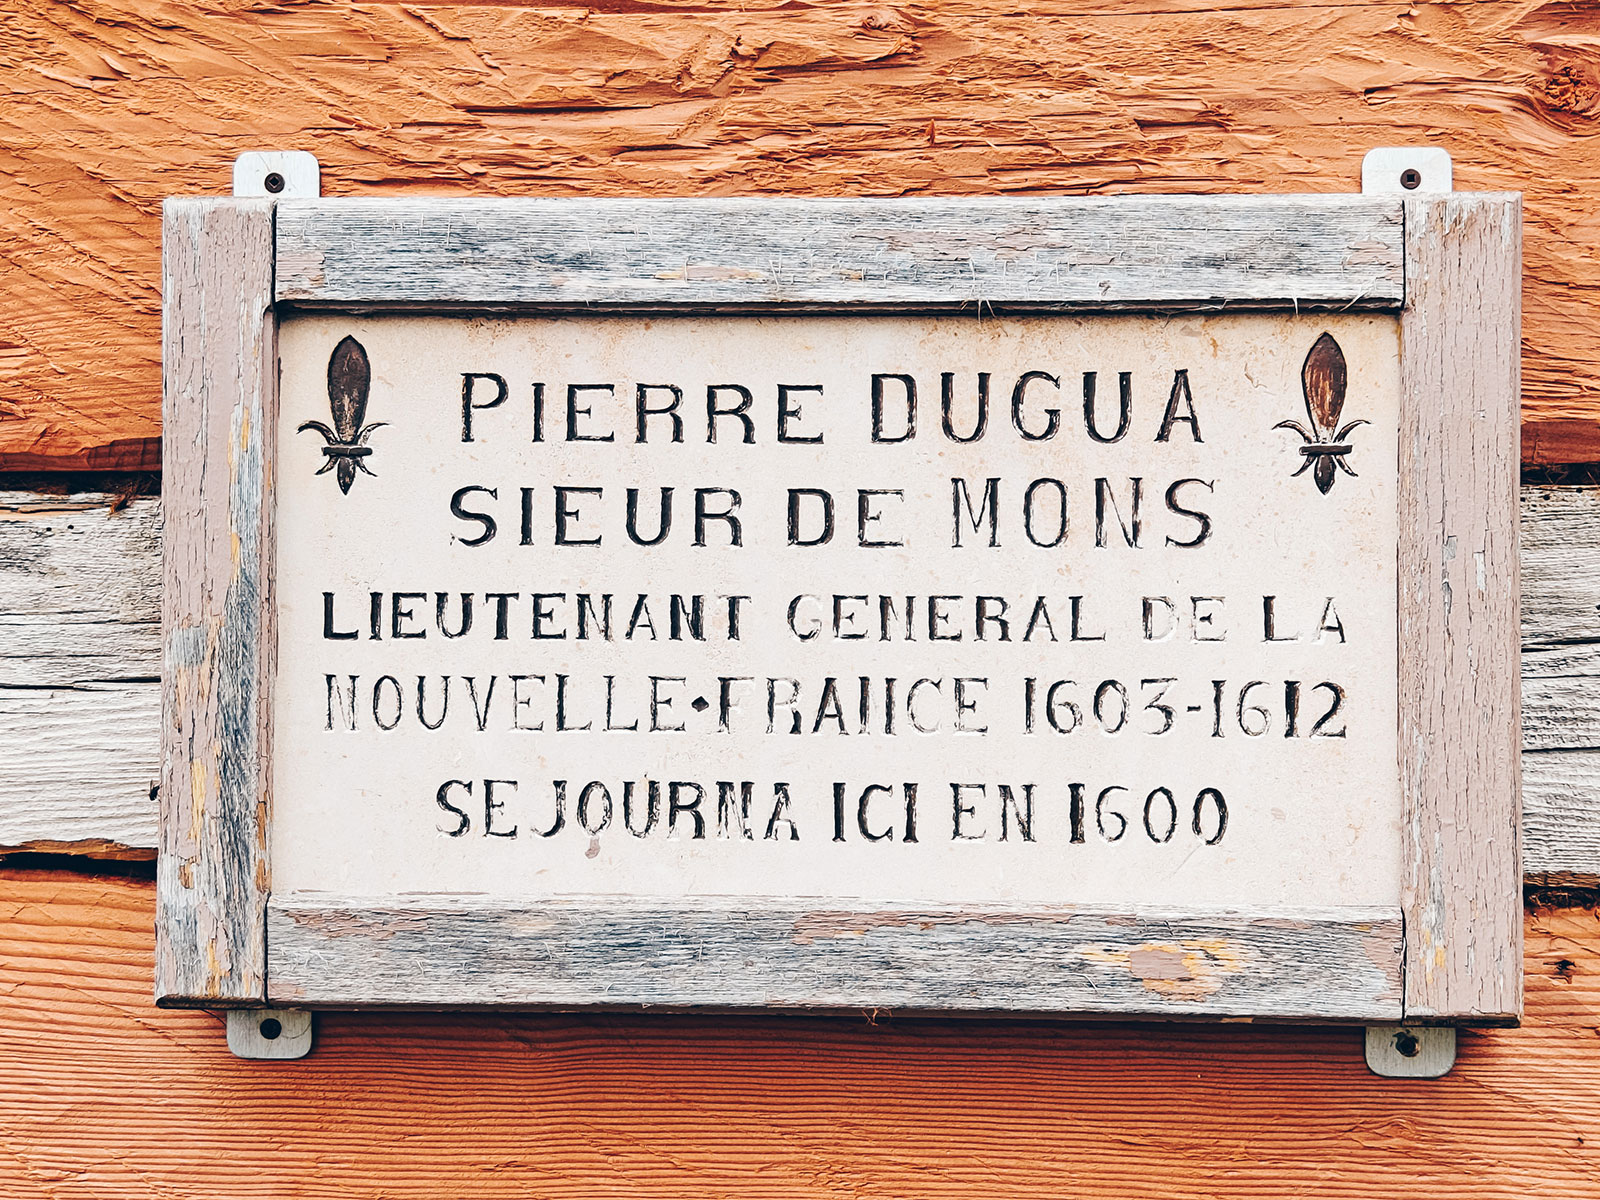 PIERRE DUGUA
SIEUR DE MONS
LIEUTENANT GENERAL DE LA
NOUVELLE·FRANCE 1603-1612
SEJOURNA ICI EN 1600